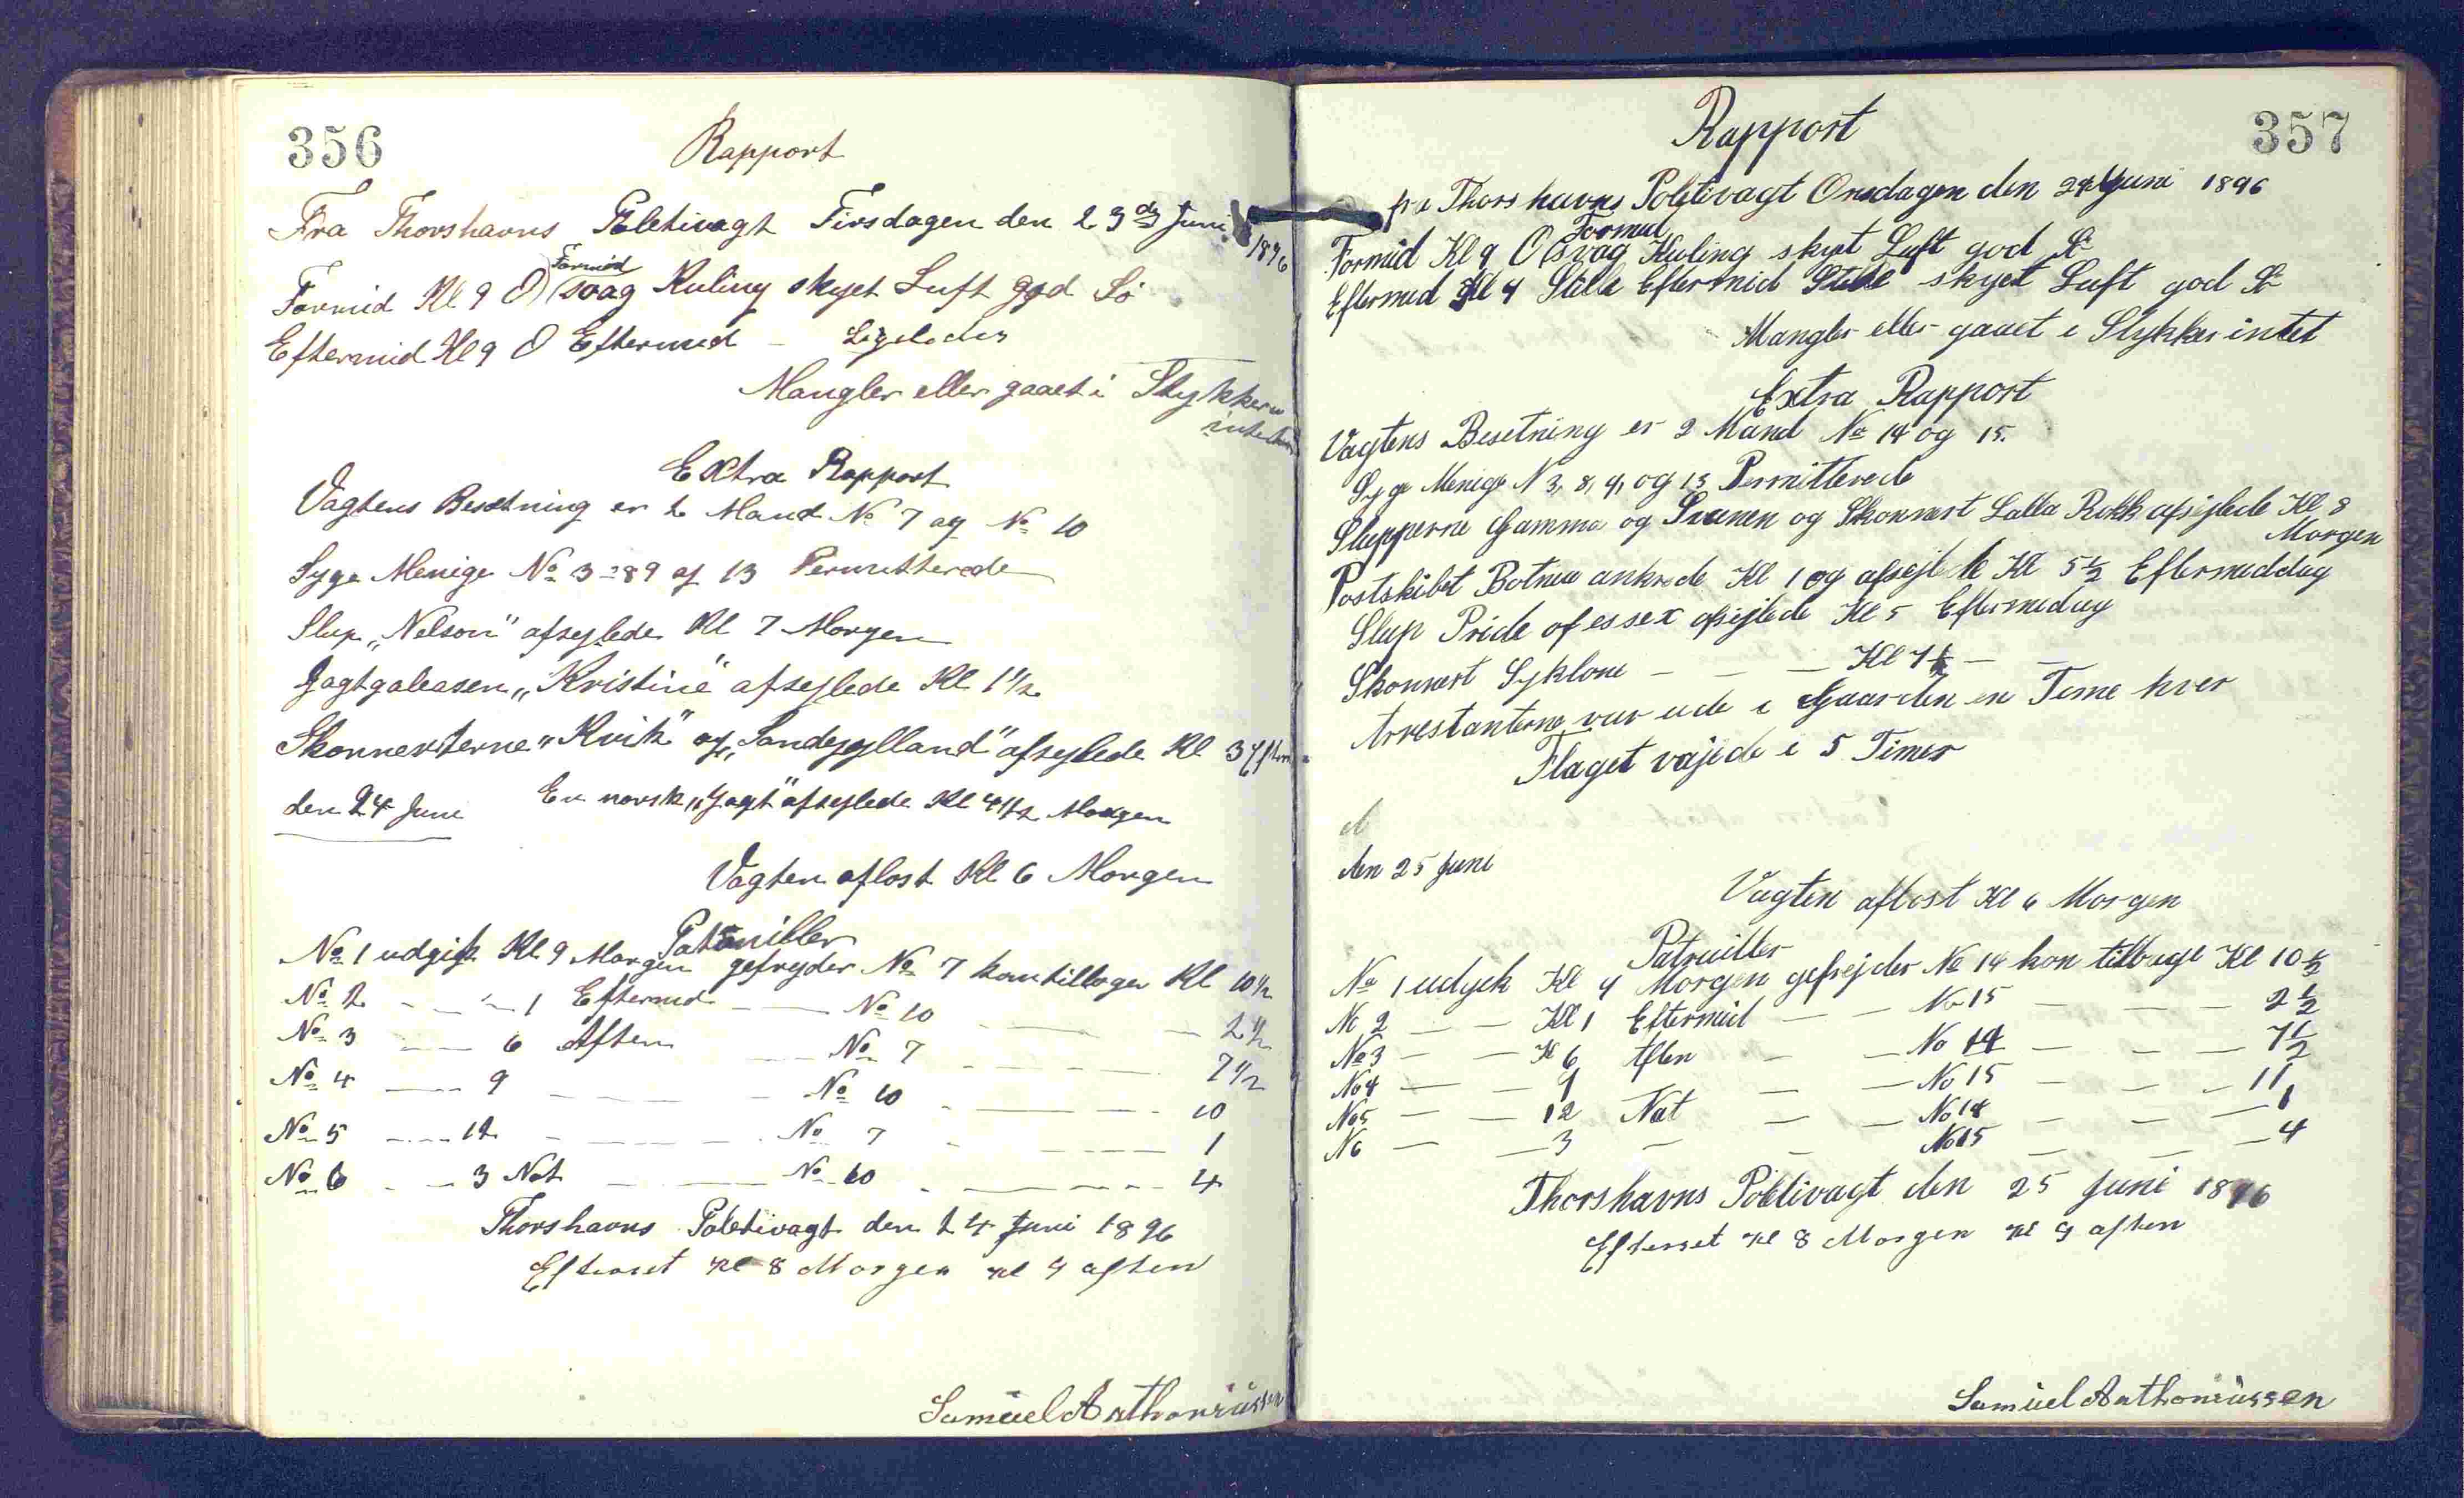 356
Rapport
Fra Thorshavns Poletivagt Tirsdagen den 23de Juni 1896
Formid
Formid Kl 9 O svag Kuling skyet Luft god Sö
Eftermid Kl 9 O Eftermid - Ligeledes
Mangler eller gaaet i Stykker
intet
Extra Rapport
Vagtens Besetning er 2 Mand No 7 og No 10
Syge Menige No 3-89 og 13 Permitterede
Slup „Nelson" afsejlede Kl 7 Morgen
Jagtgaleasen „Kristine" afsejlede Kl 1 1/2
Skonnerterne „Kvik" og „Sandegylland" afsejlede Kl 3 Efterm
den 24 Juni En norsk „Jagt" afsejlede Kl 4 1/2 Morgen
Vagten aflost Kl 6 Morgen
Patrouiller
No 1 udgik Kl 9 Morgen gefrejder No 7 kom tilbage Kl 10 1/2
No 2 - - - 1 Eftermid - - No 10 - - - 2 1/2
No 3 - - 6 Aften - - No 7 - - - 7 1/2
No 4 - - 9 - - - No 10 - - - 10
No 5 - - 12 - - - No 7 - - - 1
No 6 - - 3 Nat - - No 10 - - - 4
Thorshavns Poletivagt den 24 Juni 1896
Efterset Kl 8 Morgen Kl 9 aften
Samuel Anthoniussen
357
Rapport
fra Thorshavns Politivagt Onsdagen den 24 Juni 1896
Formid
Formid Kl 9 O svag Kuling skyet Luft god Sö
Eftermid Kl 9 Stille Eftermid Stille skyet Luft god Sö
Mangler eller gaaet i Stykker intet
Extra Rapport
Vagtens Besetning er 2 Mand No 14 og 15.
Syge Menige N 3, 8, 9, og 13 Permitterede
Slupperne Gamma og Svanen og Skonnert Lalla Rokk afsejlede Kl 8
Morgen
Postskibet Botnia ankrede Kl 1 og afsejlede Kl 5 1/2 Eftermeddag
Slup Pride of essex afsejlede Kl 5 Eftermedag
Skonnert Syklone - - - Kl 7 1/2 - -
Arrestanterne var ude i Gaarden en Time hver
Flaget vajede i 5 Timer
d
den 25 Juni
Vagten aflost Kl 6 Morgen
Patruiller
No 1 udgck Kl 9 Morgen gefrejder No 14 kom tilbage Kl 10 1/2
No 2 - - Kl 1 Eftermid - - No 15 - - - 2 1/2
No 3 - - Kl 6 Aften - - No 14 - - - 7 1/2
No 4 - - 9 - - No 15 - - - 11
No 5 - - 12 Nat - - No 14 - - - 1
N 6 - - 3 - - No 15 - - - 4
Thorshavns Poletivagt den 25 Juni 1896
Efterset Kl 8 Morgen Kl 9 aften
Samuel Anthoniussen